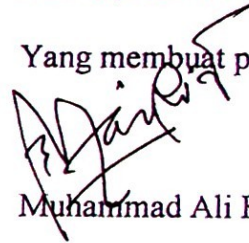 Yang membuat p
Muhammad Ali